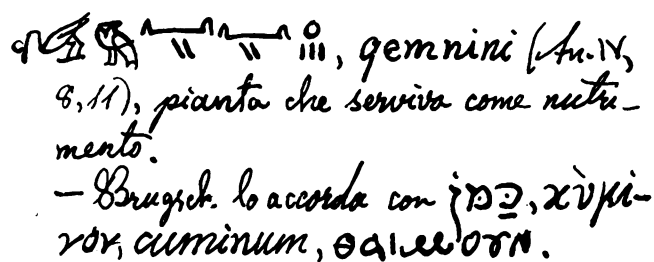 , gemnini (An. IV,
8, 11), pianta che serviva come nutri-
mento.
— Brugsch. lo accorda con כַּמן, κὺμι-
νον, cuminum,